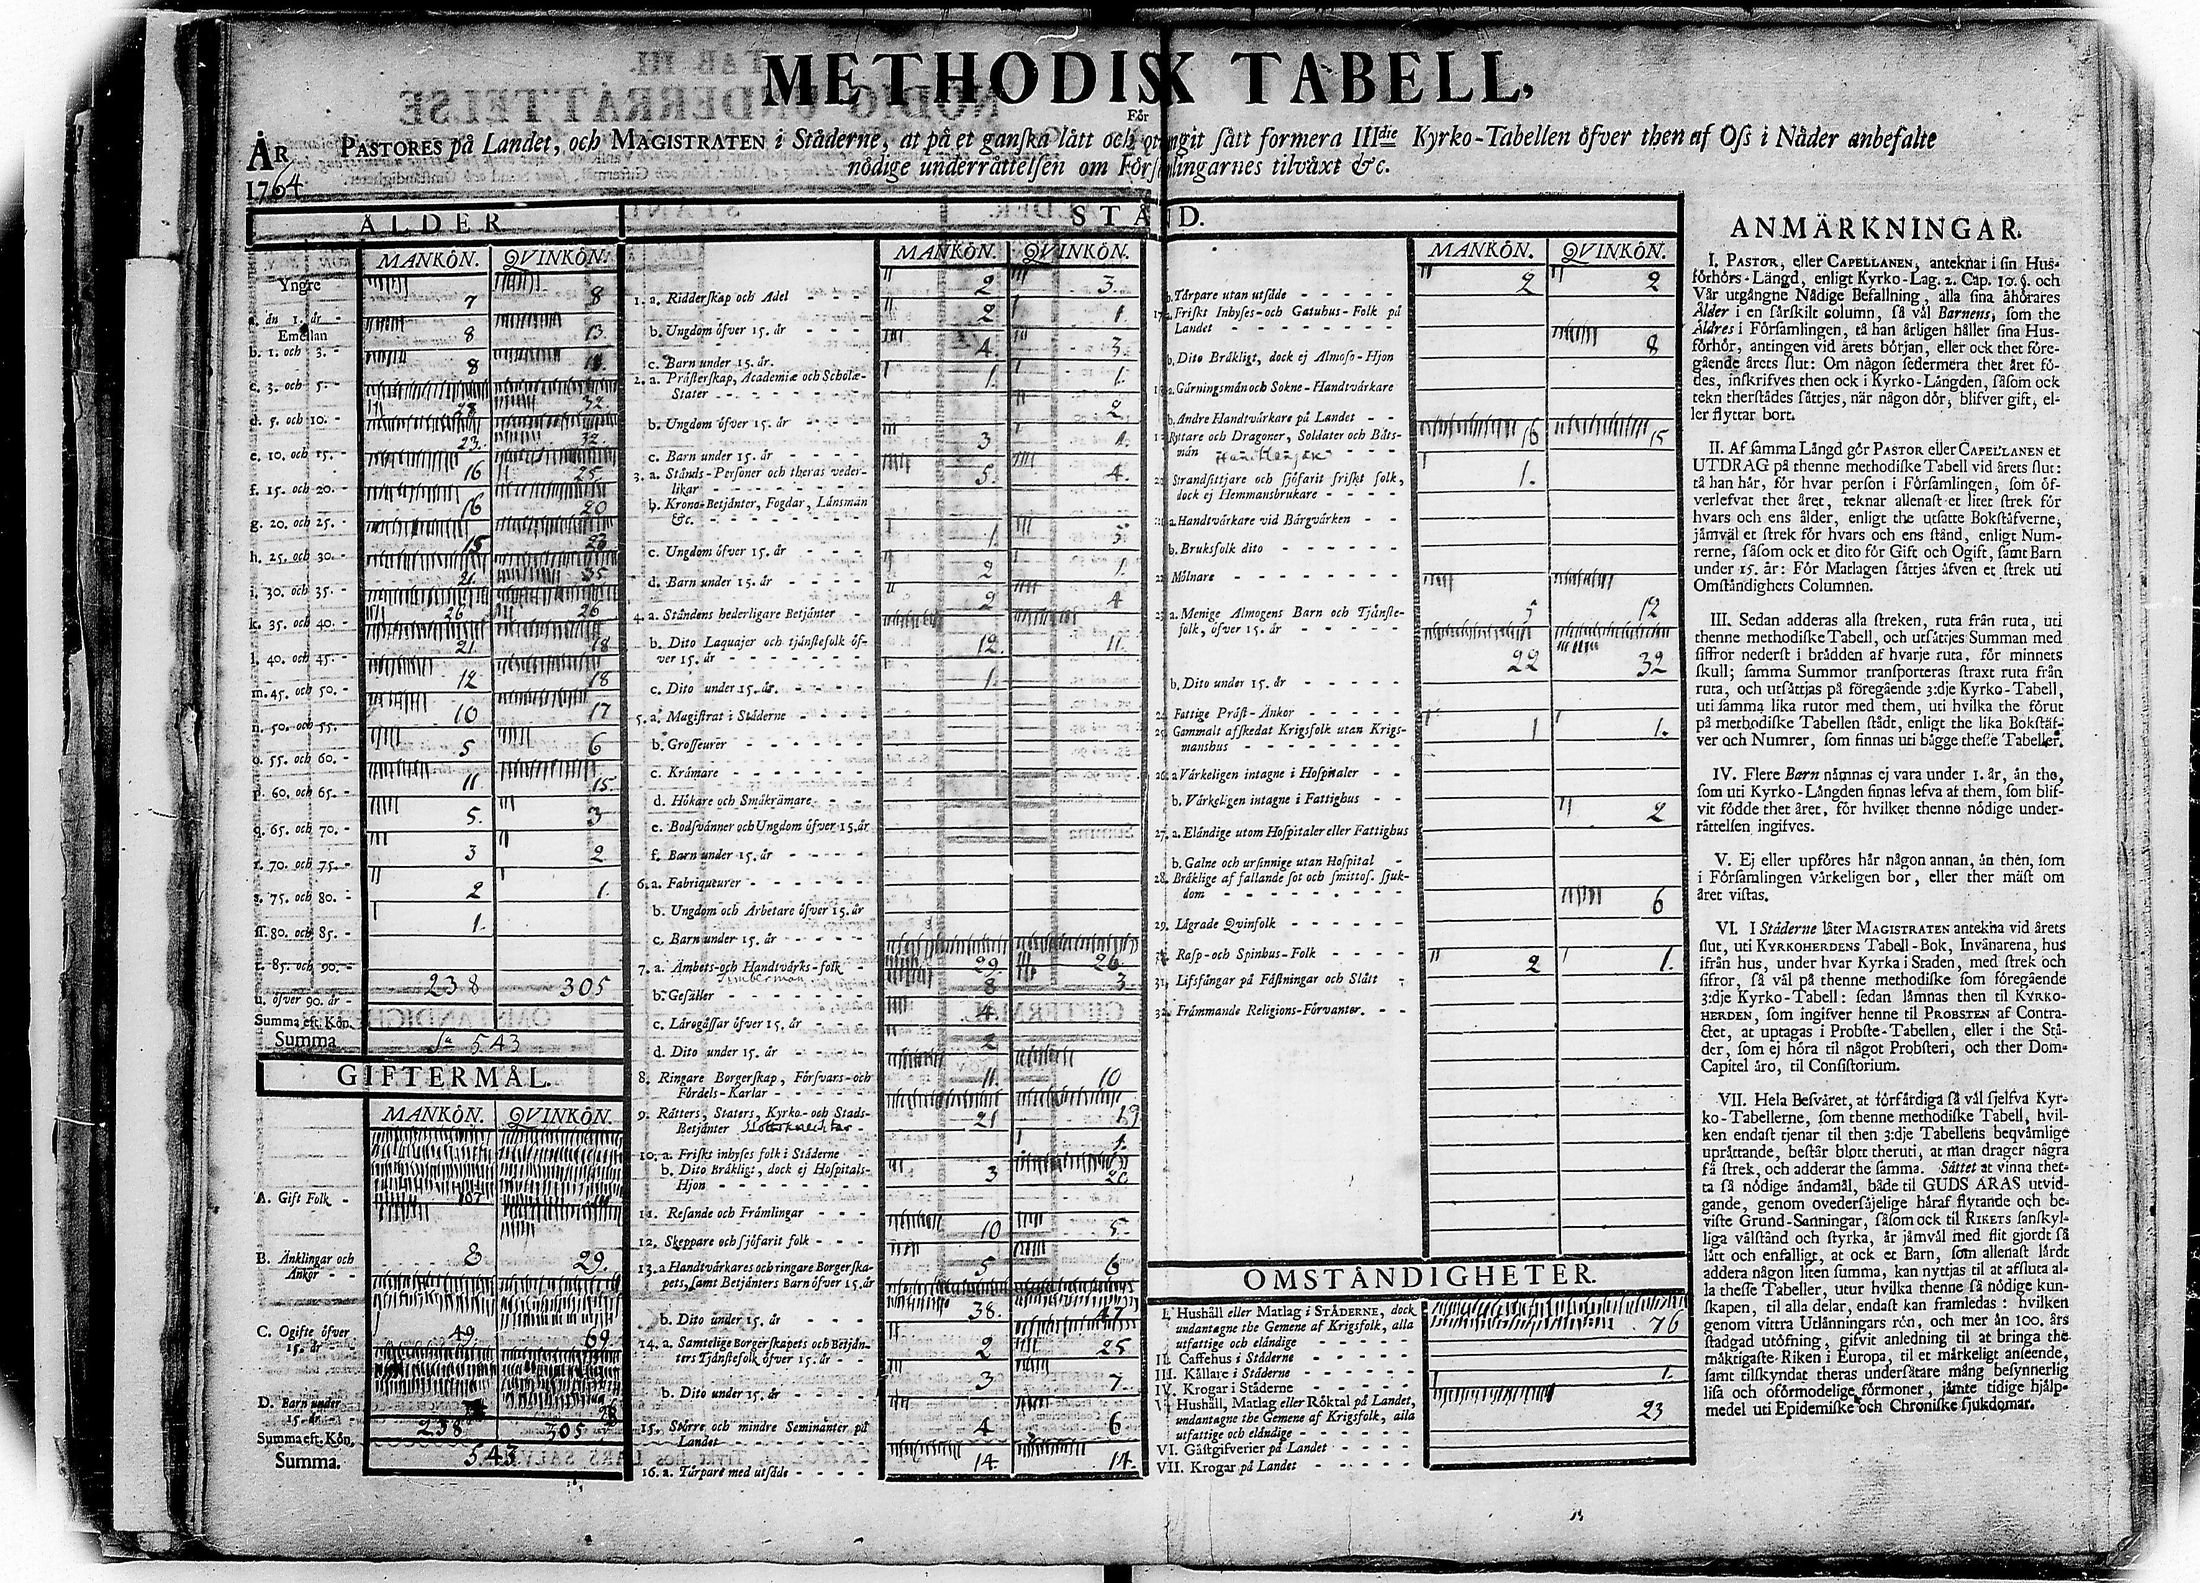 METHODISK TABELL,
För
PASTORES på Landet, och MAGISTRATEN i Städerne, at på et ganska lätt och otvungit sätt formera IIIdie Kyrko-Tabellen öfver then af Oss i Nåder anbefalte
nödige underrättelsen om Församlingarnes tilväxt &c.
ÅR
1764
ÅLDER
MANKÖN. QVINKÖN.
Yngre
a. än 1. år - 7 8
Emellan
b. 1. och 3. - 8 13.
c. 3. och 5. - 8 11.
d. 5. och 10. - 28 32
e. 10. och 15. - 23. 32.
f. 15. och 20. - 16 25
g. 20. och 25. - 16 20
h. 25. och 30. - 15 23
i. 30. och 35. - 21. 35
k. 35. och 40. - 26 26
l. 40. och 45. - 21. 18
m. 45. och 50. - 12 18
n. 50. och 55. - 10 17
o. 55. och 60. - 5 6
p. 60. och 65. - 11. 15.
q. 65. och 70. - 5. 3
r. 70. och 75. - 3 2
s. 75. och 80. - 2 1.
ss. 80. och 85. - 1.
t. 85. och 90. -
u. öfver 90. år -
Summa eft. Kön. 238 305
Summa Sa 543
GIFTERMÅL.
MANKÖN. QVINKÖN.
A. Gift Folk - 107
B. Änklingar och
Änkor - - 8 29.
C. Ogifte öfver
15. år - - 49 69.
D. Barn under
15. år -
Summa eft. Kön. 238 305
Summa. 543.
STÅND.
MANKÖN. QVINKÖN.
1. a. Ridderskap och Adel - - - 2 3.
b. Ungdom öfver 15. år - - - 2 1.
c. Barn under 15. år. 4. 3
2. a. Prästerskap, Academiæ och Scholæ-
Stater - - - - - - - 1. 1.
b. Ungdom öfver 15. år - - - 2
c. Barn under 15. år - - - 3 1.
3. a. Stånds-Personer och theras veder-
likar - - - - - - - 5. 4.
b. Krono-Betjänter, Fogdar, Länsmän
&c. - - - - - - -
c. Ungdom öfver 15. år - - - 1. 5
d. Barn under 15. år - - - - 2 1.
4. a. Ståndens hederligare Betjänter - 2 4
b. Dito Laquajer och tjänstefolk öf-
ver 15. år - - - - - - 12. 11.
c. Dito under 15. år. - - - - 1.
5. a. Magistrat i Städerne - - - -
b. Grosseurer - - - - - -
c. Krämare - - - - - - -
d. Hökare och Småkrämare - - -
e. Bodsvänner och Ungdom öfver 15. år
f. Barn under 15. år - - - -
6. a. Fabriqueurer - - - - - -
b. Ungdom och Arbetare öfver 15. år
c. Barn under 15. år - - - -
7. a. Ämbets-och Handtvärks-folk - 29. 26.
Timberman
b. Gesäller - - - - - - 8 3.
c. Lärogåssar öfver 15. år - - 4
d. Dito under 15. år - - - - 2
8. Ringare Borgerskap, Försvars-och
Fördels-Karlar - - - - - 11. 10
9. Rätters, Staters, Kyrko-och Stads-
Betjänter Slottsknecktar - 21 19
10. a. Friskt inhyses folk i Städerne - 1.
b. Dito Bräkligt, dock ej Hospitals-
Hjon - - - - - - - 3 20
11. Resande och Främlingar - - -
12. Skeppare och sjöfarit folk - - - 10 5.
13. a Handtvärkares och ringare Borgerska-
pets, samt Betjänters Barn öfver 15. år 5 6
b. Dito under 15. år - - - - 38. 47
14. a. Samtelige Borgerskapets och Betjän-
ters Tjänstefolk öfver 15. år - - 2 25
b. Dito under 15. år - - - - 3 7.
15. Större och mindre Seminanter på
Landet - - - - - - - 4 6
16. a. Torpare med utsäde - - - - 14. 14.
MANKÖN. QVINKÖN.
b. Torpare utan utsäde - - - - - 2 2
17. a. Friskt Inhyses-och Gatuhus-Folk på
Landet - - - - - - - -
b. Dito Bräkligt, dock ej Almoso-Hjon 8
a. Gärningsmän och Sokne-Handtvärkare
b. Andre Handtvärkare på Landet - -
Ryttare och Dragoner, Soldater och Båts-
män - - 16 15
Strandsittjare och sjöfarit friskt folk,
dock ej Hemmansbrukare - - - - 1.
21. a. Handtvärkare vid Bärgvärken - -
b. Bruksfolk dito - - - - - -
22. Mölnare - - - - - - - -
23. a. Menige Almogens Barn och Tjänste-
folk, öfver 15. år - - - - - - 5 12
b. Dito under 15. år - - - - - 22 32
24. Fattige Präst-Änkor - - - - -
25. Gammalt afskedat Krigsfolk utan Krigs-
manshus - - - - - - - - 1 1.
26. a Värkeligen intagne i Hospitaler - -
b. Värkeligen intagne i Fattighus - - 2
27. a. Eländige utom Hospitaler eller Fattighus
b. Galne och ursinnige utan Hospital -
28. Bräklige af fallande sot och smittos. sjuk-
dom - - - - - - - - - 6
29. Lägrade Qvinfolk - - - - - -
30. Rasp-och Spinhus-Folk - - - - 2 1.
31. Lifsfångar på Fästningar och Slått -
32. Främmande Religions-Förvanter. - -
OMSTÄNDIGHETER.
I. Hushåll eller Matlag i STÄDERNE, dock
undantagne the Gemene af Krigsfolk, alla
utfattige och eländige - - - - - 76
II. Caffehus i Städerne - - - - -
III. Källare i Städerne - - - - -
IV. Krogar i Städerne - - - - - 1.
V. Hushåll, Matlag eller Röktal på Landet,
undantagne the Gemene af Krigsfolk, alla
utfattige och eländige - - - - - 23
VI. Gästgifverier på Landet - - - - -
VII. Krogar på Landet - - - - - -
ANMÄRKNINGAR.
I. PASTOR, eller CAPELLANEN, anteknar i sin Hus-
förhörs-Längd, enligt Kyrko-Lag. 2. Cap. 10. §. och
Vår utgångne Nådige Befallning, alla sina åhörares
Ålder i en särskilt column, så väl Barnens, som the
Äldres i Församlingen, tå han årligen håller sina Hus-
förhör, antingen vid årets början, eller ock thet före-
gående årets slut: Om någon sedermera thet året fö-
des, inskrifves then ock i Kyrko-Längden, såsom ock
tekn therstädes sättjes, när någon dör, blifver gift, el-
ler flyttar bort.
II. Af samma Längd gör PASTOR eller CAPELLANEN et
UTDRAG på thenne methodiske Tabell vid årets slut:
tå han här, för hvar person i Församlingen, som öf-
verlefvat thet året, teknar allenast et litet strek för
hvars och ens ålder, enligt the utsatte Bokstäfverne,
jämväl et strek för hvars och ens stånd, enligt Num-
rerne, såsom ock et dito för Gift och Ogift, samt Barn
under 15. år: För Matlagen sättjes äfven et strek uti
Omständighets Columnen.
III. Sedan adderas alla streken, ruta från ruta, uti
thenne methodiske Tabell, och utsättjes Summan med
siffror nederst i brädden af hvarje ruta, för minnets
skull; samma Summor transporteras straxt ruta från
ruta, och utsättjas på föregående 3:dje Kyrko-Tabell,
uti samma lika rutor med them, uti hvilka the förut
på methodiske Tabellen städt, enligt the lika Bokstäf-
ver och Numrer, som finnas uti bägge thesse Tabeller.
IV. Flere Barn nämnas ej vara under 1. år, än the,
som uti Kyrko-Längden finnas lefva af them, som blif-
vit födde thet året, för hvilket thenne nödige under-
rättelsen ingifves.
V. Ej eller upföres här någon annan, än then, som
i Församlingen värkeligen bor, eller ther mäst om
året vistas.
VI. I Städerne låter MAGISTRATEN antekna vid årets
slut, uti KYRKOHERDENS Tabell-Bok, Invånarena, hus
ifrån hus, under hvar Kyrka i Staden, med strek och
sifror, så väl på thenne methodiske som föregående
3:dje Kyrko-Tabell: sedan lämnas then til KYRKO-
HERDEN, som ingifver henne til PROBSTEN af Contra-
ctet, at uptagas i Probste-Tabellen, eller i the Stä-
der, som ej höra til något Probsteri, och ther Dom-
Capitel äro, til Consistorium.
VII. Hela Besväret, at förfärdiga så väl sjelfva Kyr-
ko-Tabellerne, som thenne methodiske Tabell, hvil-
ken endast tjenar til then 3:dje Tabellens beqvämlige
uprättande, består blott theruti, at man drager några
få strek, och adderar the samma. Sättet at vinna thet-
ta så nödige ändamål, både til GUDS ÄRAS utvid-
gande, genom ovedersäjelige häraf flytande och be-
viste Grund-Sanningar, såsom ock til RIKETS sanskyl-
liga välstånd och styrka, är jämväl med flit gjordt så
lätt och enfalligt, at ock et Barn, som allenast lärdt
addera någon liten summa, kan nyttjas til at afsluta al-
la thesse Tabeller, utur hvilka thenne så nödige kun-
skapen, til alla delar, endast kan framledas: hvilken
genom vittra Utlänningars rön, och mer än 100. års
stadgad utöfning, gifvit anledning til at bringa the
mäktigaste Riken i Europa, til et märkeligt anseende,
samt tilskyndat theras undersåtare mång besynnerlig
lisa och oförmodelige förmoner, jämte tidige hjälp-
medel uti Epidemiske och Chroniske sjukdomar.